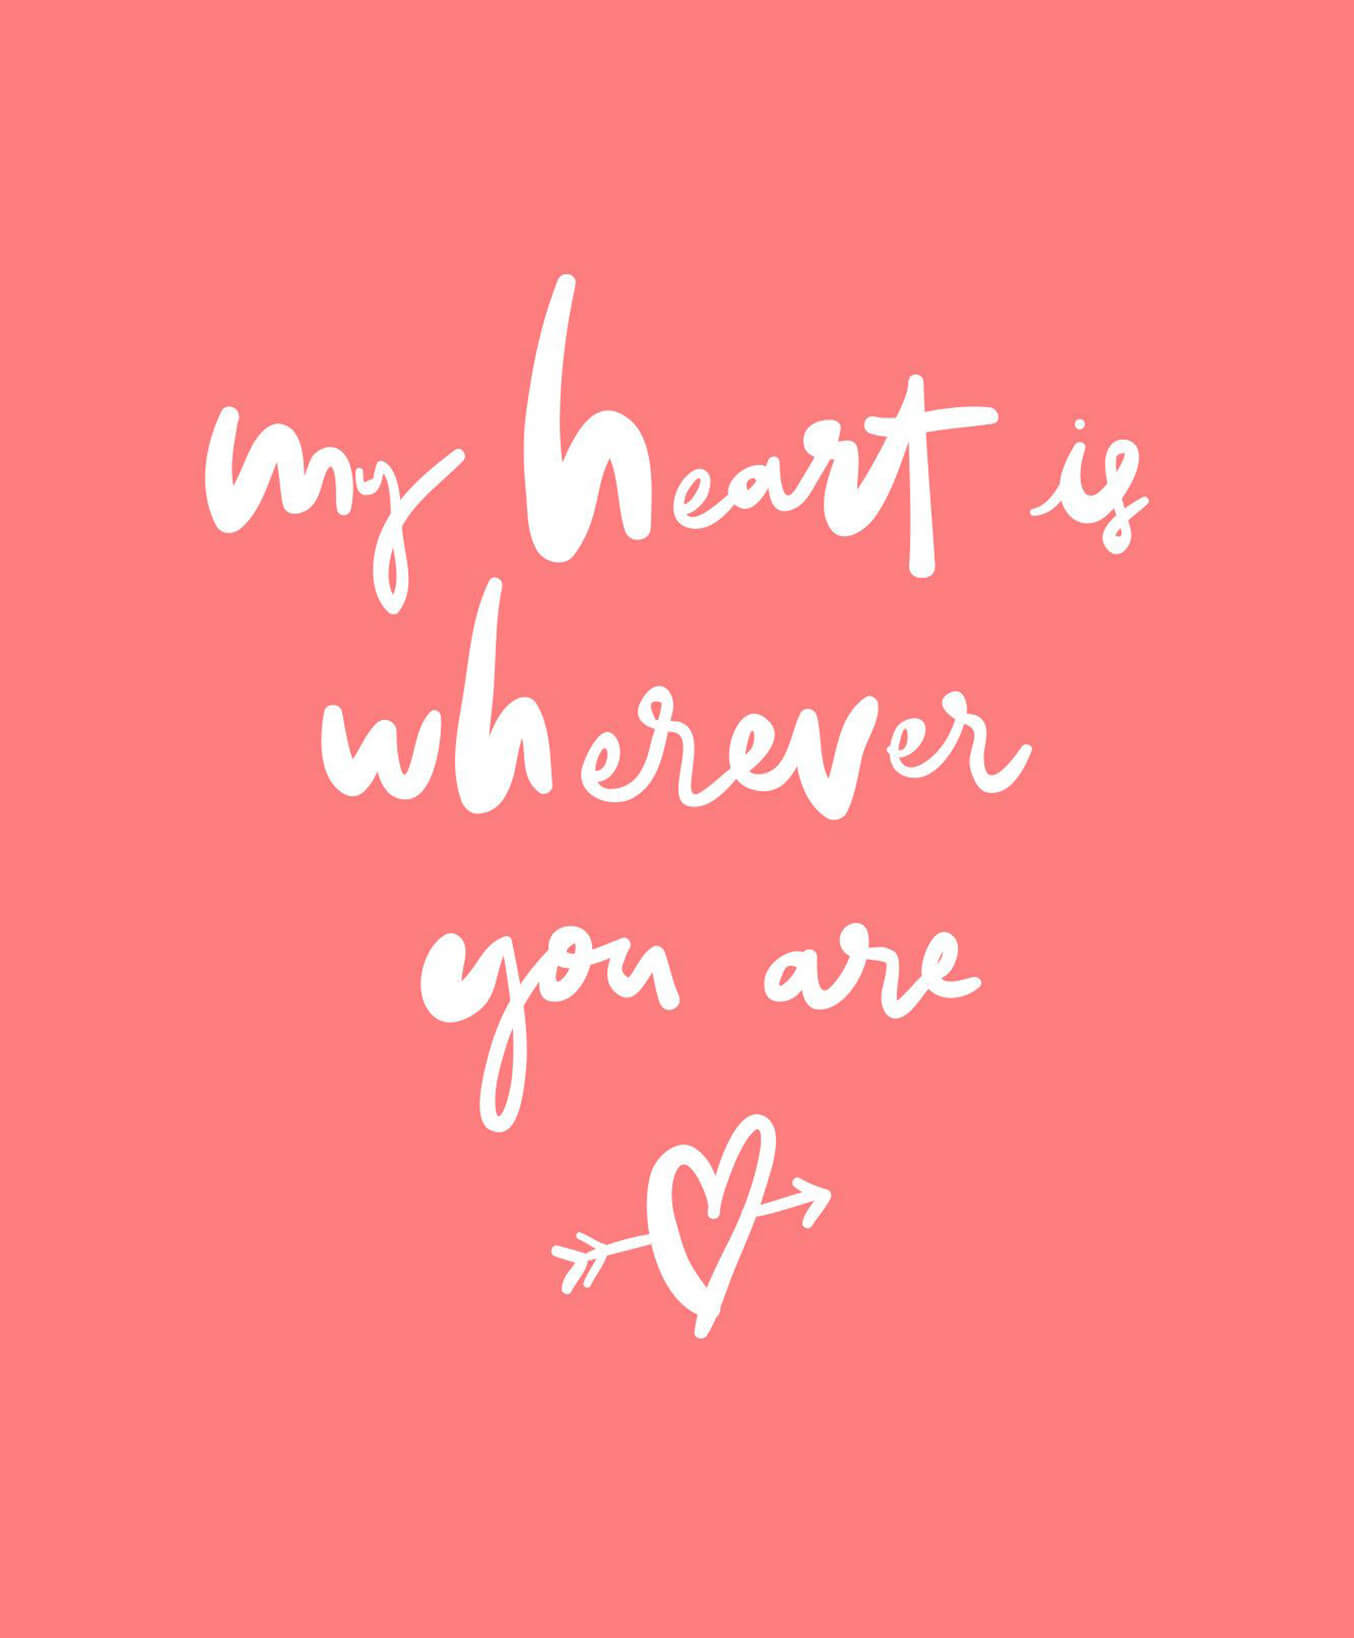 my heart is
wherever
you are